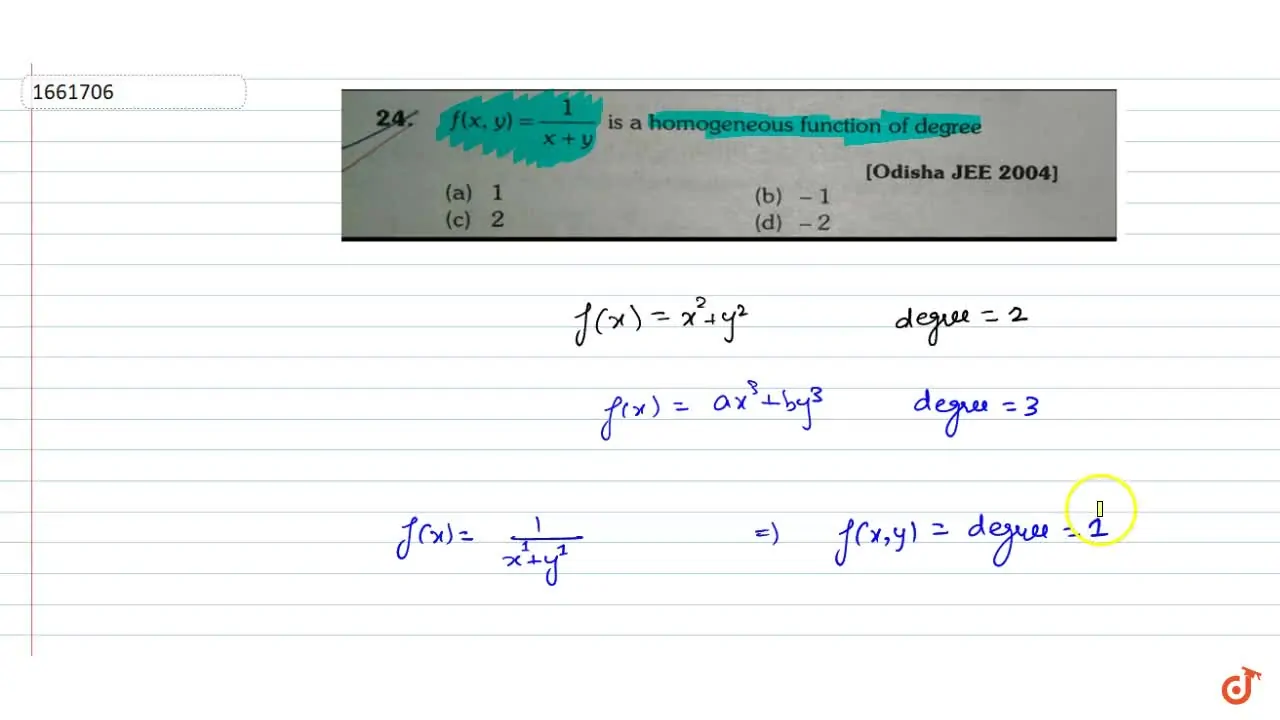 1661706
24. f(x, y) = 1/(x + y) is a homogeneous function of degree
[Odisha JEE 2004]
(a) 1 (b) – 1
(c) 2 (d) – 2
f(x) = x² + y² degree = 2
f(x) = ax³ + by³ degree = 3
f(x) = 1/(x¹ + y¹) => f(x, y) = degree = 1